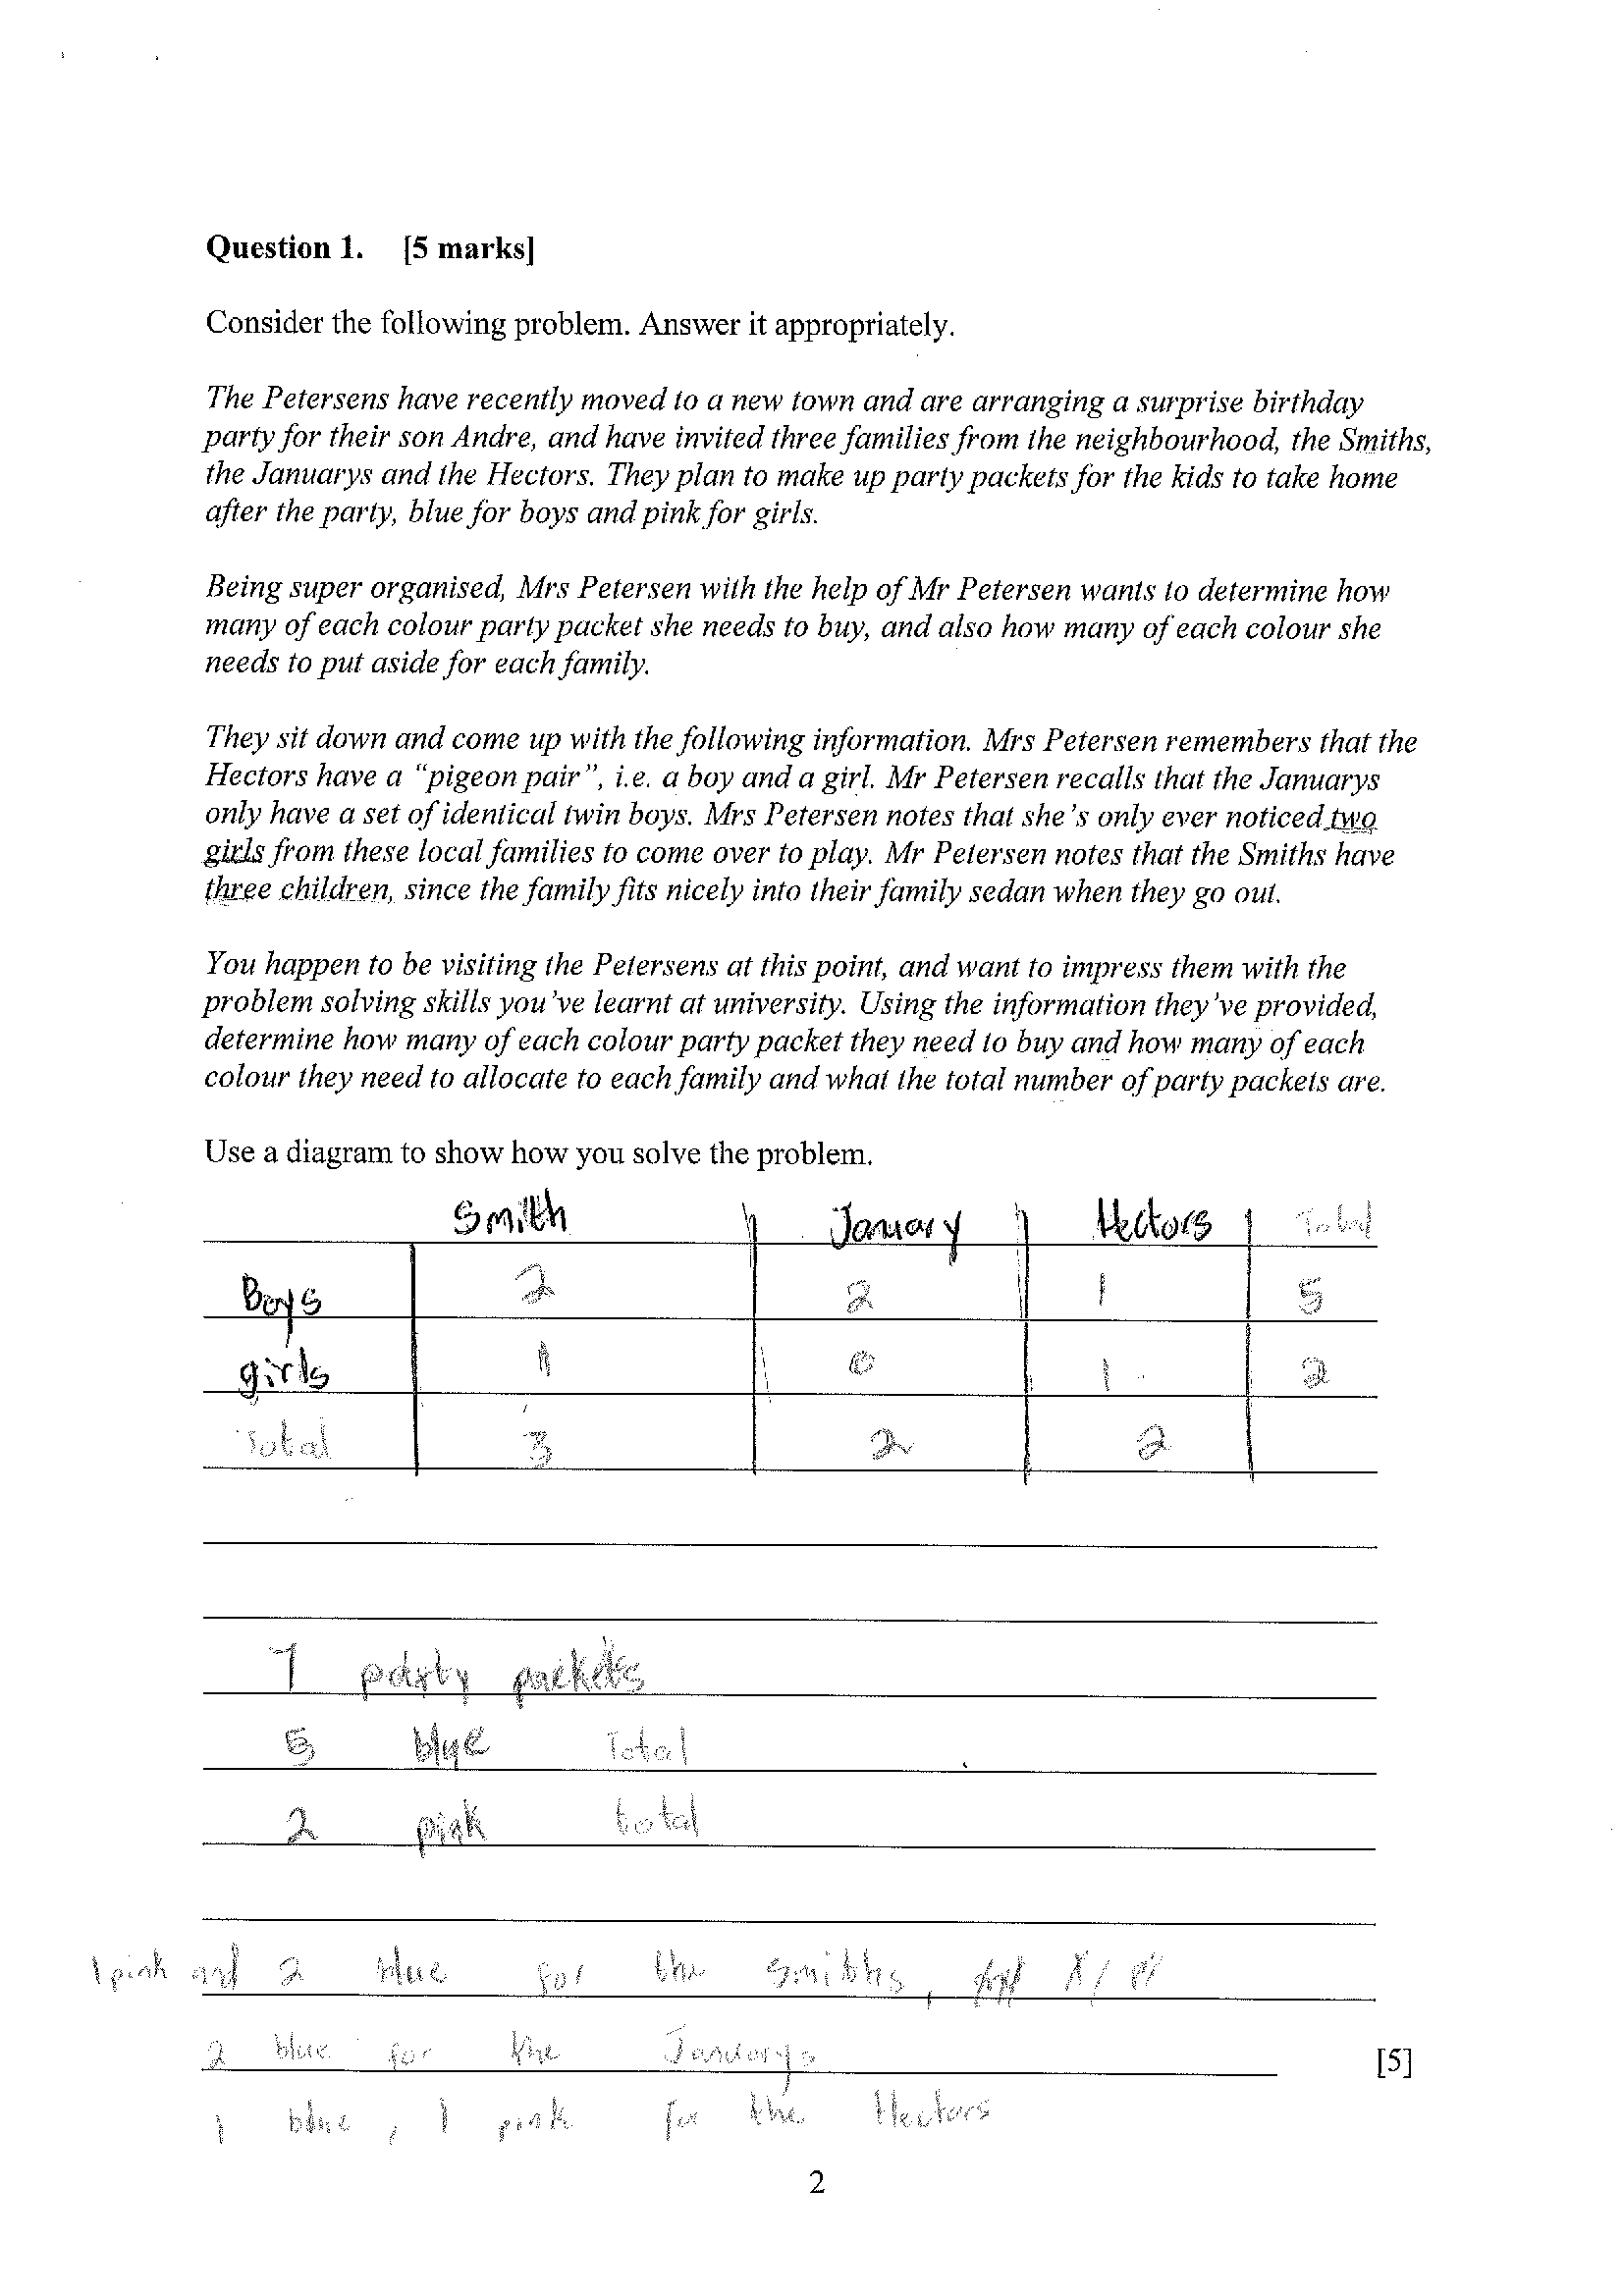 Question 1. [5 marks]
Consider the following problem. Answer it appropriately.
The Petersens have recently moved to a new town and are arranging a surprise birthday
party for their son Andre, and have invited three families from the neighbourhood, the Smiths,
the Januarys and the Hectors. They plan to make up party packets for the kids to take home
after the party, blue for boys and pink for girls.
Being super organised, Mrs Petersen with the help of Mr Petersen wants to determine how
many of each colour party packet she needs to buy, and also how many of each colour she
needs to put aside for each family.
They sit down and come up with the following information. Mrs Petersen remembers that the
Hectors have a “pigeon pair”, i.e. a boy and a girl. Mr Petersen recalls that the Januarys
only have a set of identical twin boys. Mrs Petersen notes that she’s only ever noticed two
girls from these local families to come over to play. Mr Petersen notes that the Smiths have
three children, since the family fits nicely into their family sedan when they go out.
You happen to be visiting the Petersens at this point, and want to impress them with the
problem solving skills you’ve learnt at university. Using the information they’ve provided,
determine how many of each colour party packet they need to buy and how many of each
colour they need to allocate to each family and what the total number of party packets are.
Use a diagram to show how you solve the problem.
Smith January Hectors Total
Boys 2 2 1 5
girls 1 0 1 2
Total 3 2 2
7 party packets
5 blue Total
2 pink total
1 pink and 2 blue for the smiths,
2 blue for the Januarys [5]
1 blue, 1 pink for the Hectors
2